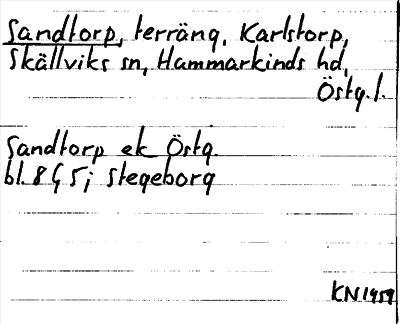 Sandtorp, terräng, Karlstorp,
Skällviks sn, Hammarkinds hd,
Östg. l.
Sandtorp ek Östg.
bl. 8 G 5; Stegeborg
KN 1959